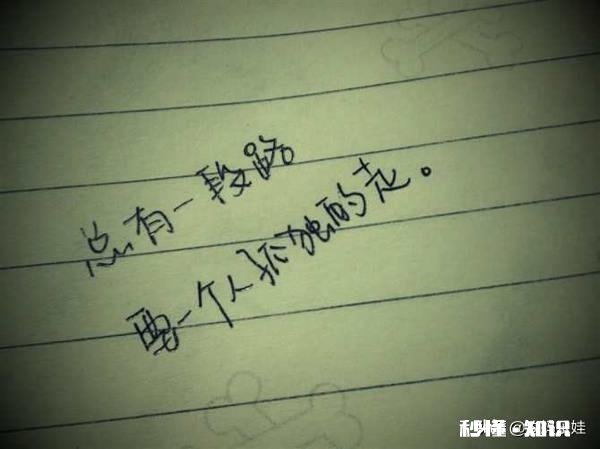 总有一段路
要一个人孤独的走。
秒懂·知识